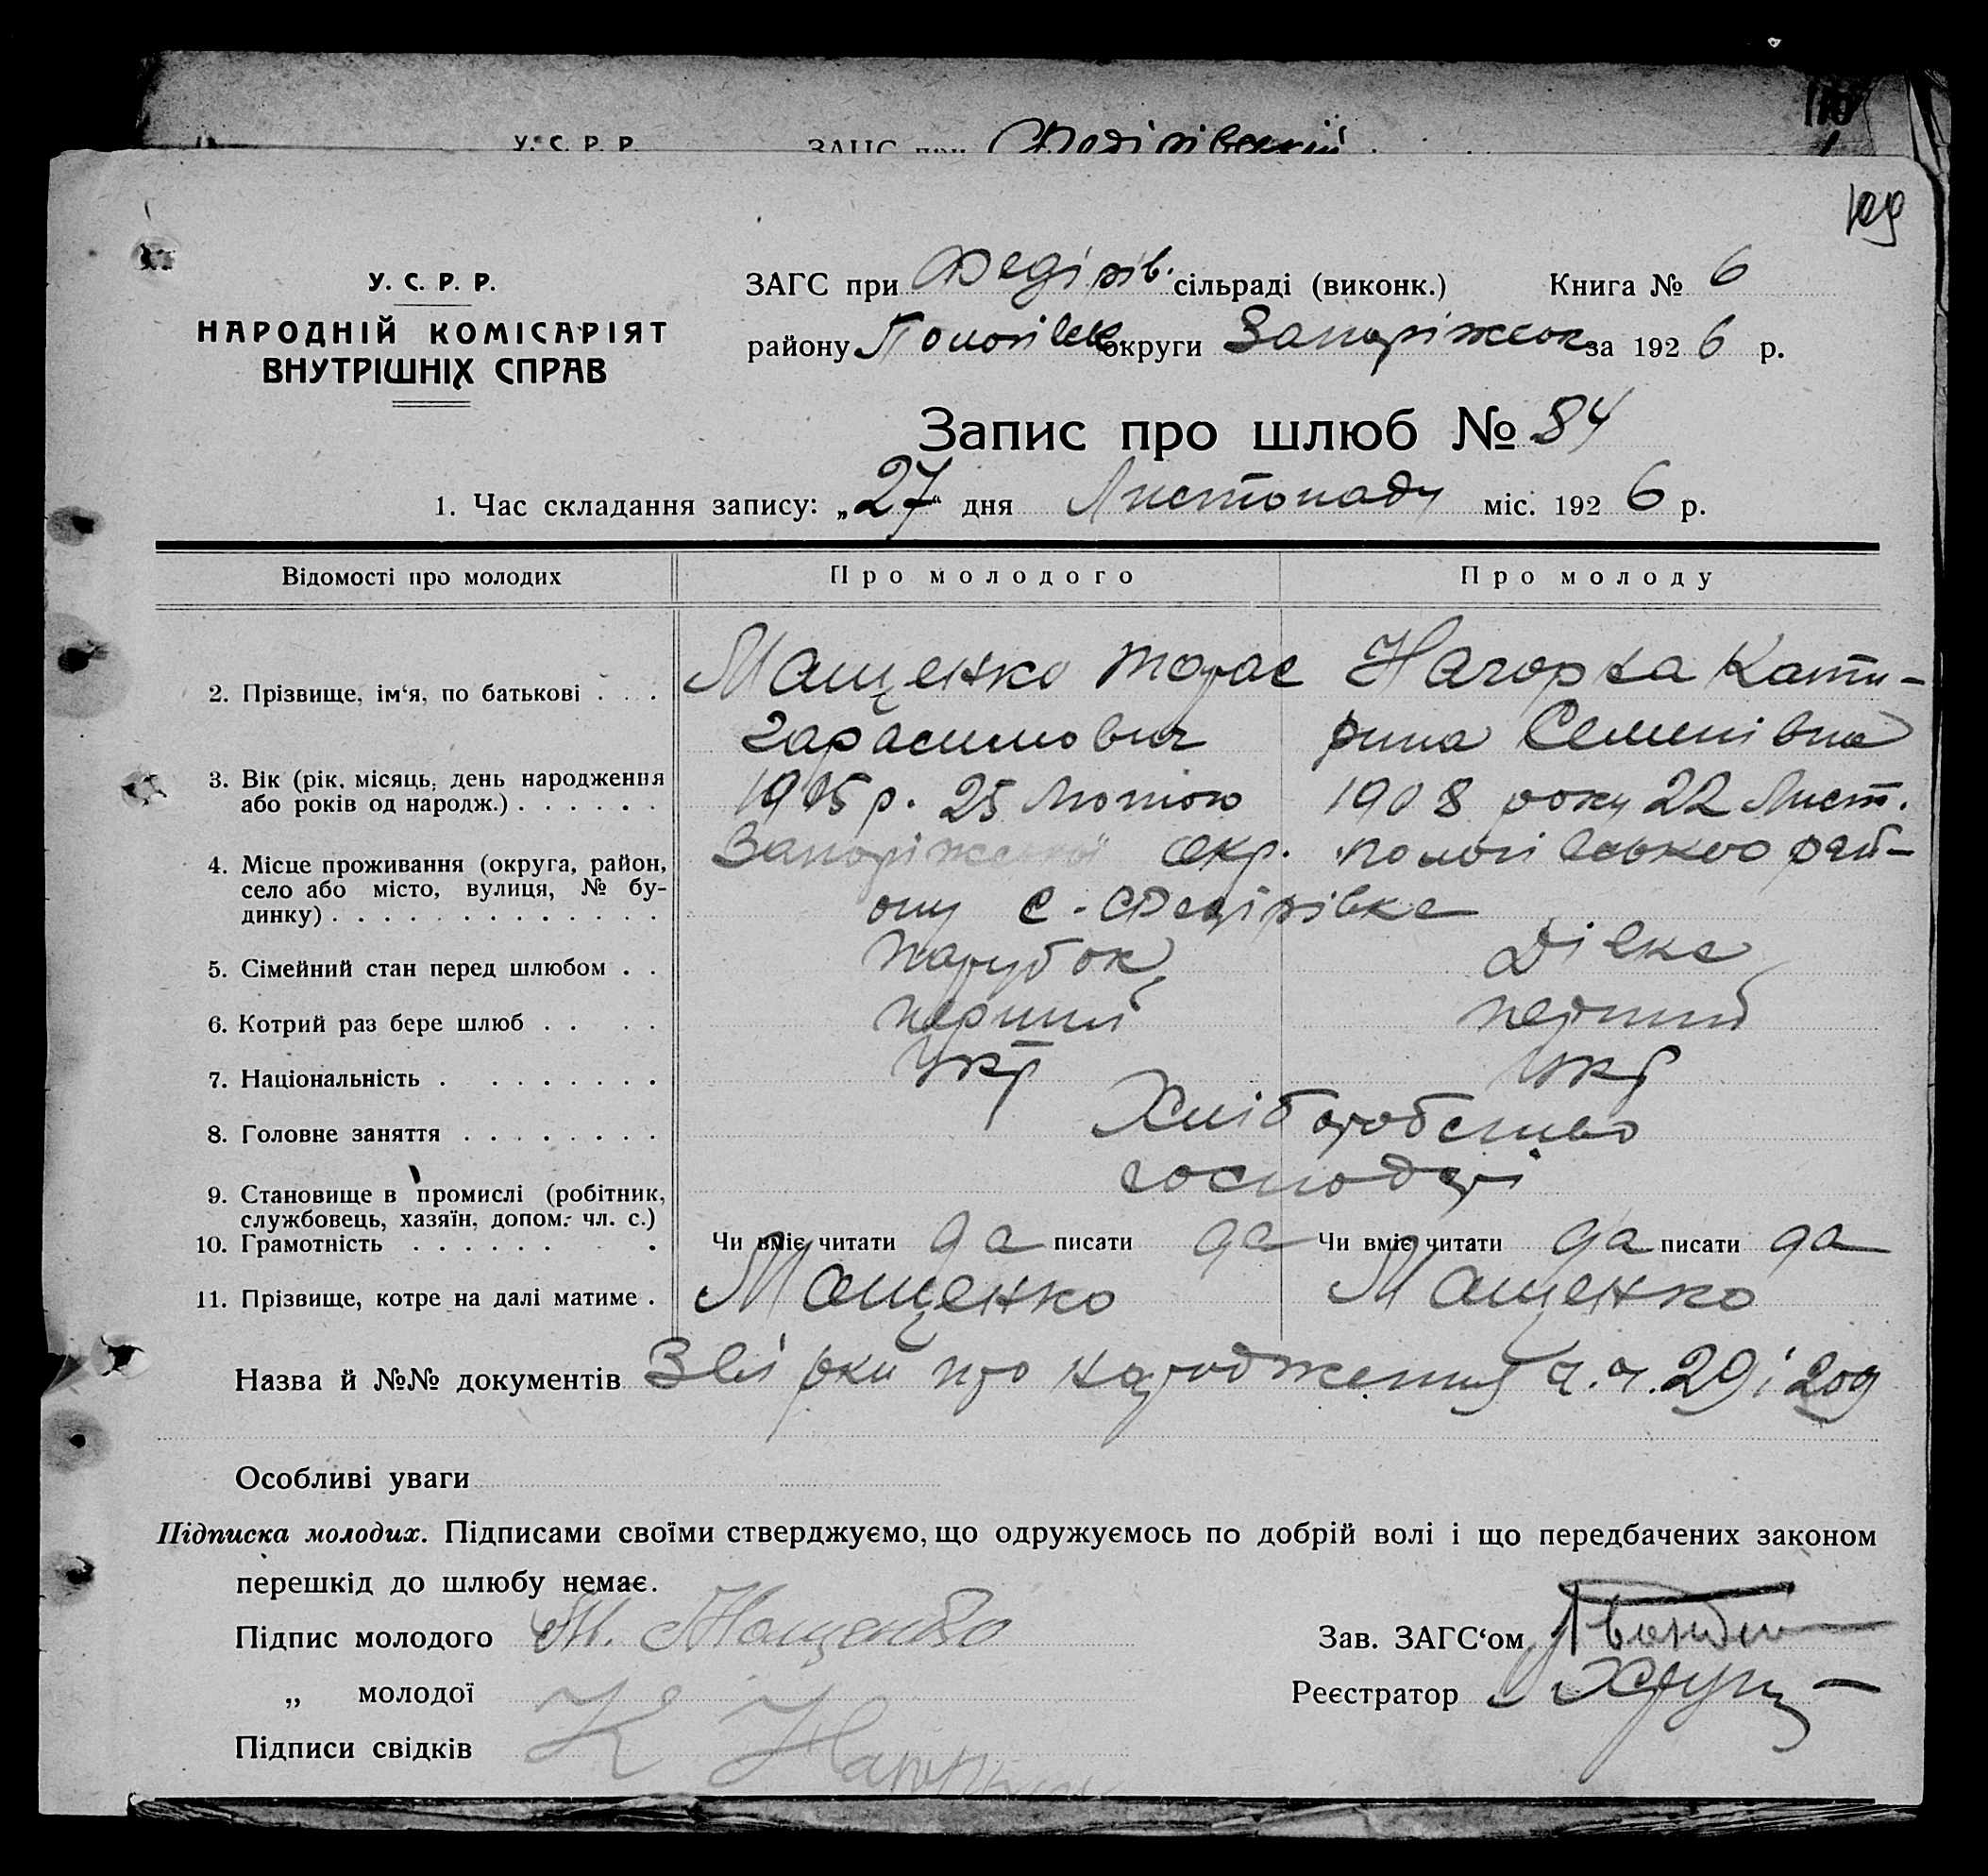 У. С. Р. Р. ЗАГС при Федірівській
110
109
У. С. Р. Р.
НАРОДНІЙ КОМІСАРІЯТ
ВНУТРІШНІХ СПРАВ
ЗАГС при Федірів. сільраді (виконк.) Книга № 6
району Пологівськ округи Запоріжськ за 1926 р.
Запис про шлюб № 84
1. Час складання запису: „27“ дня Листопаду міс. 1926 р.
Відомості про молодих Про молодого Про молоду
2. Прізвище, ім‘я, по батькові . . . Мащенко Тарас Нагорна Кати-
Гарасимович рина Семенівна
3. Вік (рік, місяць, день народження
або років од народж.) . . . . . . 25 Лютого 1908 року 22 Лист.
4. Місце проживання (округа, район,
село або місто, вулиця, № бу-
динку) . . . . . . . . . . . . . .
Запоріжської окр. Пологівського рай-
ону с. Федірівка
5. Сімейний стан перед шлюбом . . парубок Дівка
6. Котрий раз бере шлюб . . . . перший перший
7. Національність . . . . . . . . Укр Укр
8. Головне заняття . . . . . . . . Хліборобство
9. Становище в промислі (робітник,
службовець, хазяїн, допом. чл. с.)
господарі
10. Грамотність . . . . . . . . Чи вміє читати да писати да Чи вміє читати да писати да
11. Прізвище, котре на далі матиме . Мащенко Мащенко
Назва й №№ документів про народження 29 і 209
Особливі уваги
Підписка молодих. Підписами своїми стверджуємо, що одружуємось по добрій волі і що передбачених законом
перешкід до шлюбу немає.
Підпис молодого Т. Мащенко Зав. ЗАГС‘ом
„ молодої К Нагорна Реєстратор
Підписи свідків